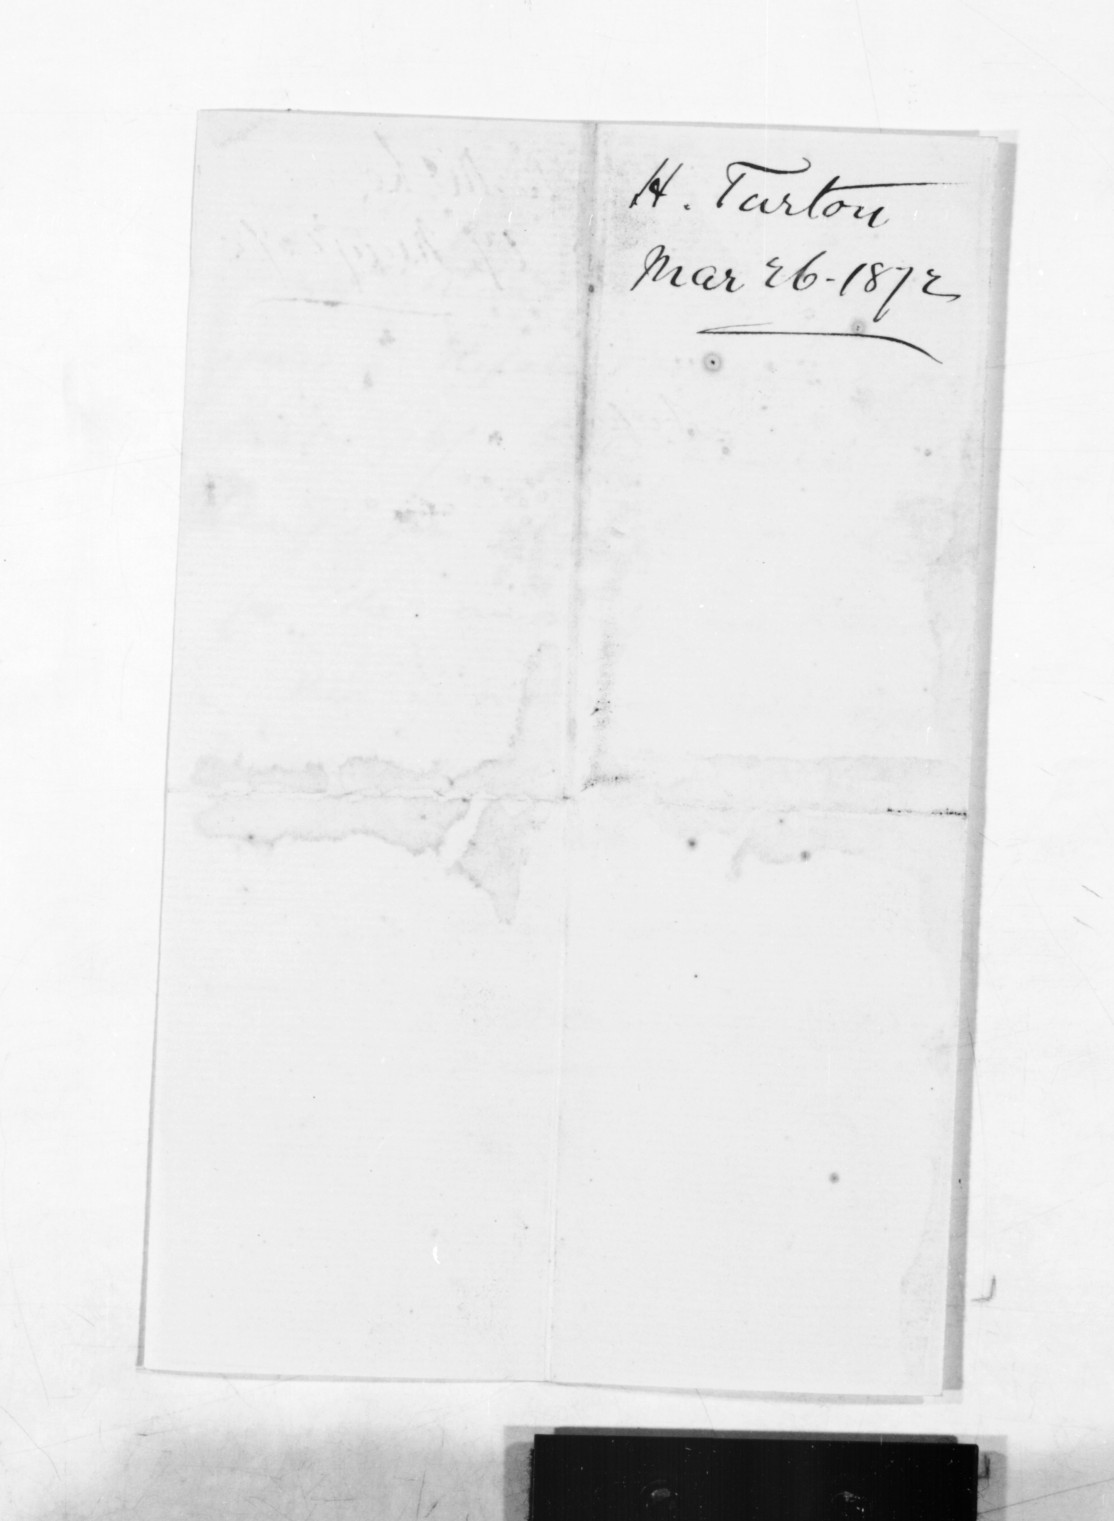 H. Tarton
Mar 26-1872